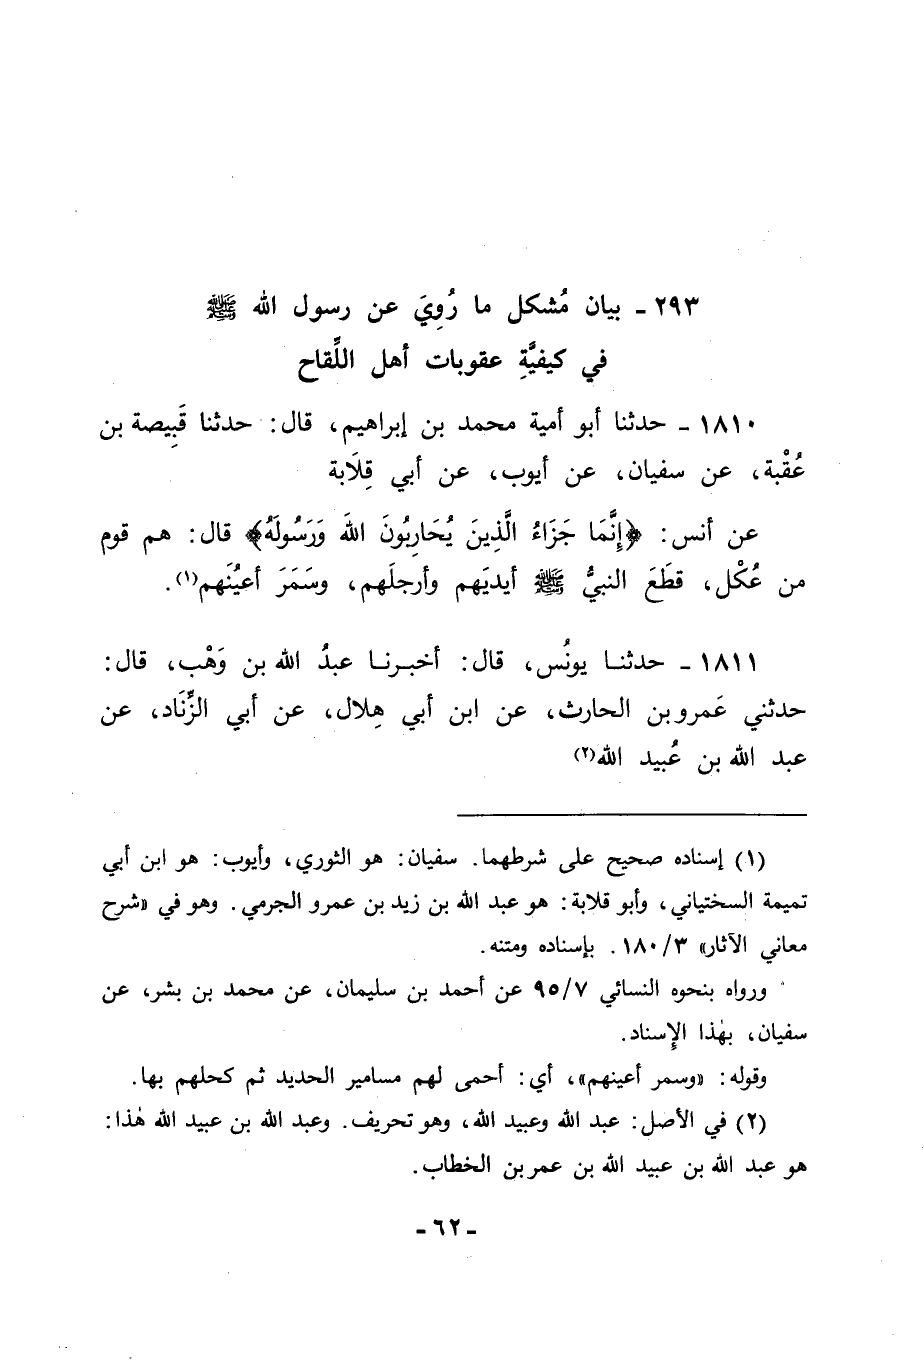 ٢٩٣ ـ بيان مُشكل ما رُوِيَ عن رسول الله ﷺ
في كيفيَّةِ عقوبات أهل اللِّقاح
١٨١٠ ـ حدثنا أبو أمية محمد بن إبراهيم، قال: حدثنا قَبِيصة بن
عُقْبة، عن سفيان، عن أيوب، عن أبي قِلَابة
عن أنس: ﴿إِنَّمَا جَزَاءُ الَّذِينَ يُحَارِبُونَ اللهَ وَرَسُولَهُ﴾ قال: هم قوم
من عُكْل، قطَعَ النبيُّ ﷺ أيديَهم وأرجلَهم، وسَمَرَ أعيُنَهم(١).
١٨١١ ـ حدثنا يونُس، قال: أخبرنا عبدُ الله بن وَهْب، قال:
حدثني عَمرو بن الحارث، عن ابن أبي هِلال، عن أبي الزِّنَاد، عن
عبد الله بن عُبيد الله(٢)
(١) إسناده صحيح على شرطهما. سفيان: هو الثوري، وأيوب: هو ابن أبي
تميمة السختياني، وأبو قلابة: هو عبد الله بن زيد بن عمرو الجرمي. وهو في «شرح
معاني الآثار» ١٨٠/٣. بإسناده ومتنه.
ورواه بنحوه النسائي ٩٥/٧ عن أحمد بن سليمان، عن محمد بن بشر، عن
سفيان، بهٰذا الإسناد.
وقوله: «وسمر أعينهم»، أي: أحمى لهم مسامير الحديد ثم كحلهم بها.
(٢) في الأصل: عبد الله وعبيد الله، وهو تحريف. وعبد الله بن عبيد الله هٰذا:
هو عبد الله بن عبيد الله بن عمر بن الخطاب.
ـ ٦٢ ـ